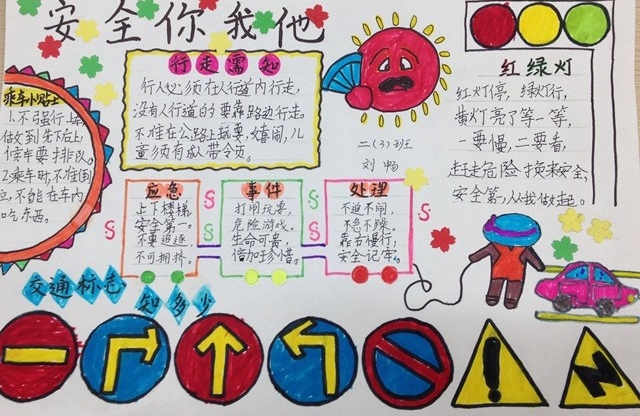 安全你我他
行走需知
行人必须在人行道内行走,
没有人行道的要靠路边行走。
不准在公路上玩耍、嬉闹,儿
童必须有成人带令页。
二(3)班
刘畅
红绿灯
红灯停,绿灯行,
黄灯亮了等一等,
一要慢,二要看,
赶走危险换来安全,
安全第一,从我做起。
乘车小贴士
1.不强行上车
做到先下后上,
候车要排队。
2.乘车时,不准倒
立,不能在车内
吃东西。
应急
上下楼梯,
安全第一。
不要追逐,
不可拥挤。
事件
打闹玩耍,
危险游戏。
生命可贵,
倍加珍惜。
处理
不追不闹,
不急不躁。
靠右慢行,
安全记牢。
交通标志
知多少